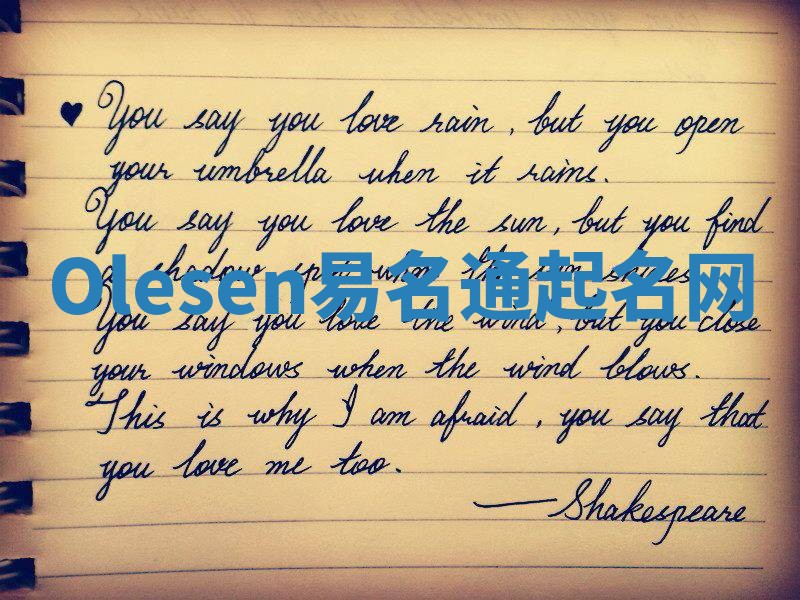 ♥ You say you love rain, but you open
your umbrella when it rains.
You say you love the sun, but you find
a shadow spot when the sun shines.
Olesen易名通起名网
You say you love the wind, but you close
your windows when the wind blows.
This is why I am afraid, you say that
you love me too.
—Shakespeare